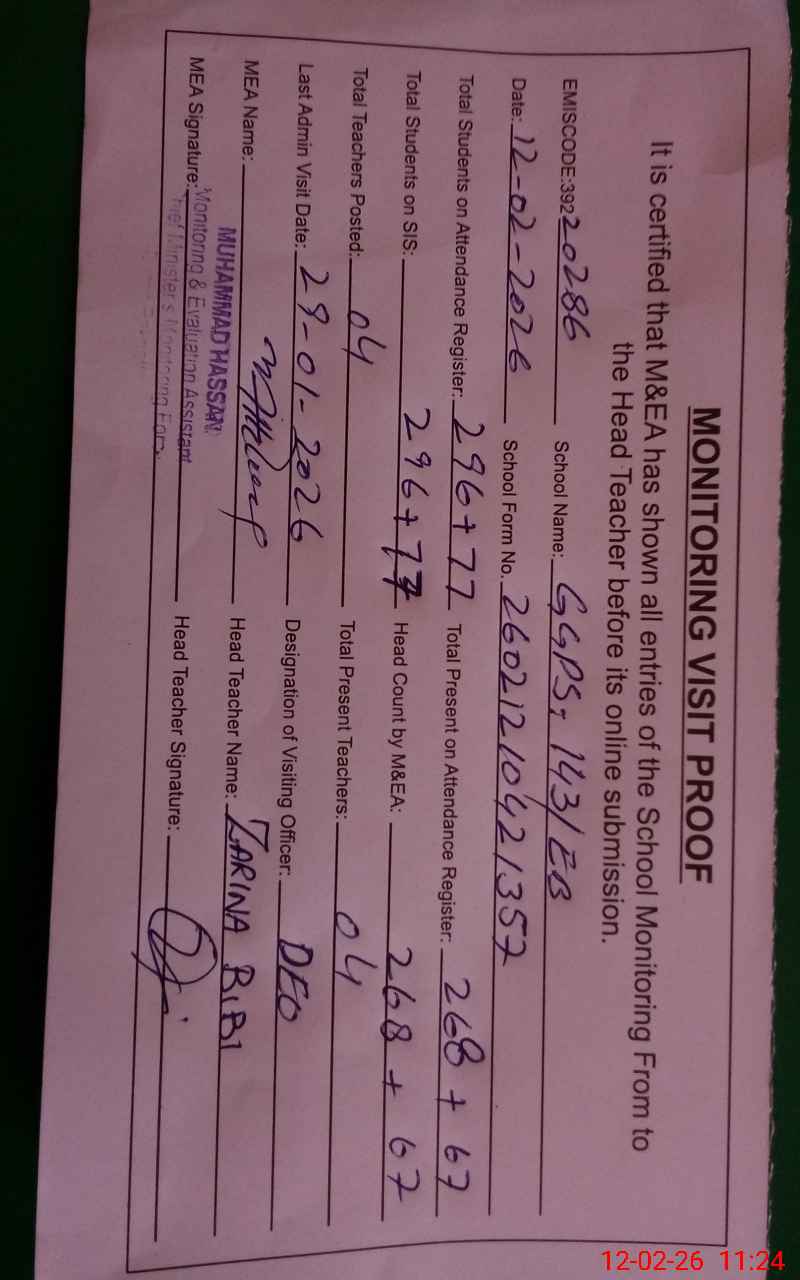 MONITORING VISIT PROOF
It is certified that M&EA has shown all entries of the School Monitoring From to
the Head Teacher before its online submission.
EMISCODE:39220286 School Name: GGPS, 143/EB
Date: 12-02-2026 School Form No. 26021210421357
Total Students on Attendance Register: 296+77 Total Present on Attendance Register: 268 + 67
Total Students on SIS: 296+77 Head Count by M&EA: 268 + 67
Total Teachers Posted: 04 Total Present Teachers: 04
Last Admin Visit Date: 29-01-2026 Designation of Visiting Officer: DEO
MEA Name: Head Teacher Name: ZARINA BIBI
MUHAMMAD HASSAN
MEA Signature: Monitoring & Evaluation Assistant Head Teacher Signature:
Chief Minister's Monitoring Force
12-02-26 11:24